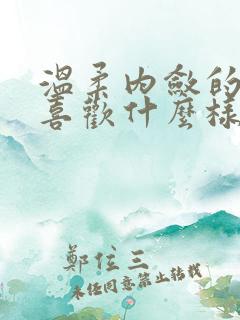 溫柔內斂的
喜歡什麼樣
鄭位三
未經同意禁止轉載